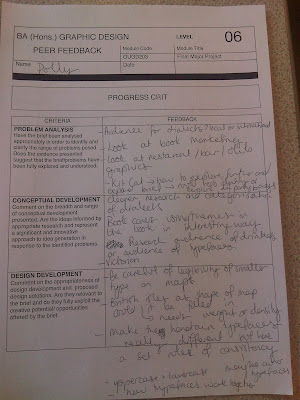 BA (Hons.) GRAPHIC DESIGN
LEVEL 06
PEER FEEDBACK
Module Code
Module Title
Final Major Project
Name Polly
Date
PROGRESS CRIT
CRITERIA
FEEDBACK
PROBLEM ANALYSIS
Have the brief been analysed
appropriately in order to identify and
clarify the range of problems posed.
Does the evidence presented
suggest that the brief/problems have
been fully explored and understood.
Audience for dialects?
Look at book marketing
Look at restaurant / bar / club
graphics
CONCEPTUAL DEVELOPMENT
Comment on the breadth and range
of conceptual development
presented. Are the ideas informed by
appropriate research and represent
a significant and innovative
approach to idea generation in
response to the identified problems.
Deeper research and categorisation
of dialects
Book covers using themes in
the book in interesting way
Research audience of
or audience of typefaces
Victorian
DESIGN DEVELOPMENT
Comment on the appropriateness of
design development and proposed
design solutions. Are they relevant to
the brief and do they fully exploit the
creative potential/ opportunities
offered by the brief.
Be careful of legibility of smaller
type on maps
British Isles shape of map
could be filled in
needs weight or density
Make the handdrawn typefaces
really different or have
a set rules of consistency
uppercase + lowercase
maybe
typefaces
how typefaces work together